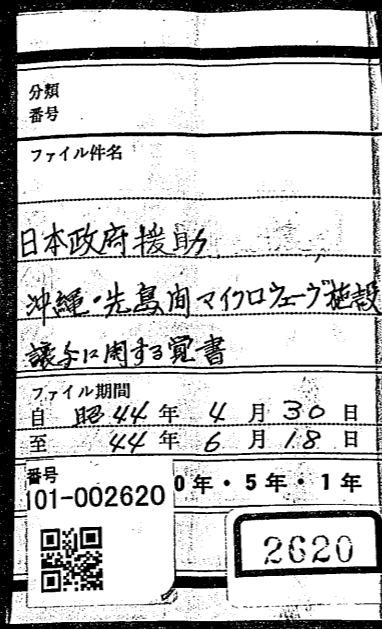 分類
番号
ファイル件名
日本政府援助
沖縄・先島間マイクロウェーヴ施設
譲与に関する覚書
ファイル期間
自 昭44年 4月30日
至 44年 6月18日
番号
101-002620
0年・5年・1年
2620